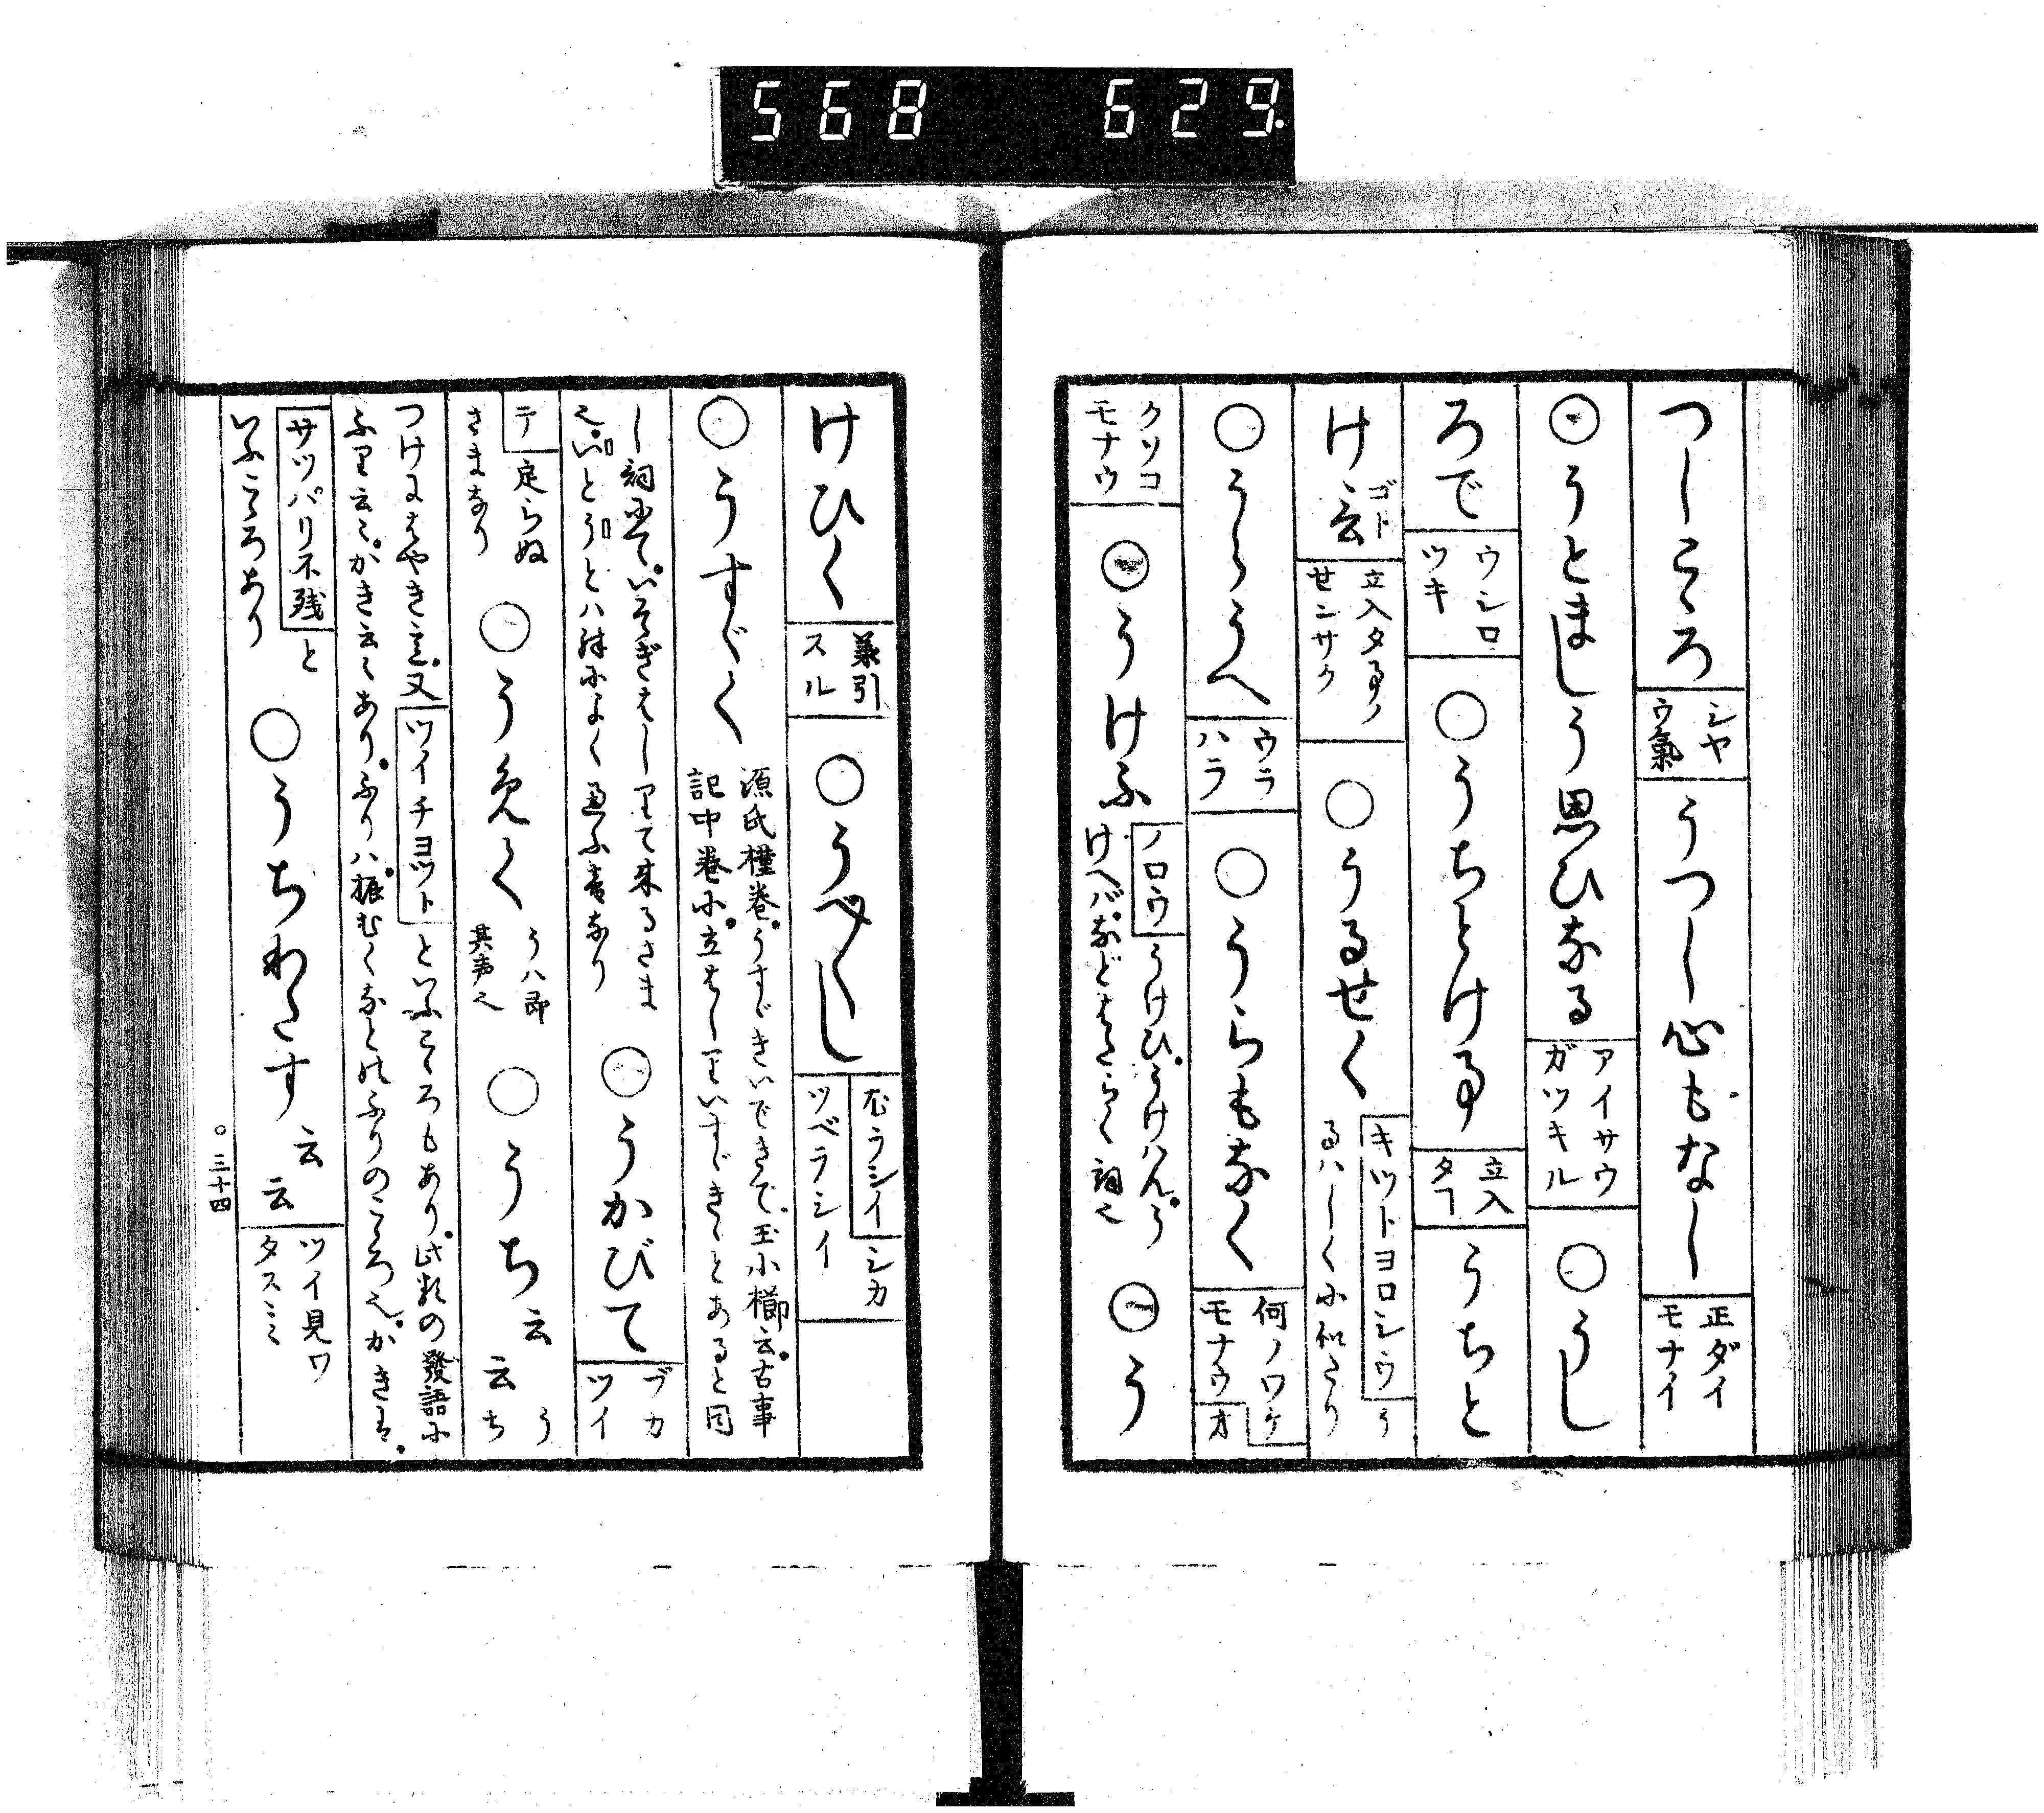 568 629.
つしこゝろ シヤウ氣 うつし心もなし 正ダイモナイ
うとましう思ひなる アイサウガツキル ○うし
ろで ウシロツキ ○うちとける 立入タヿ うちと
けごト云 立入タヿノせンサク ○うるせく キツトヨロシウ
○うらうへ ウラハラ ○うらもなく 何ノワケモナウ
クソコモナウ うけふ ノロウ うけひ。うけはん。う
けへバ。などはたらく詞也 う
けひく 兼引スル ○うべ〳〵し むラシイ シカツベラシイ
○うすゞく 源氏槿巻。うすゞきいできて、玉小櫛云。古事
記中巻に。立はしりいすゞきくとあると同
し詞にて。いそぎはしりて来るさま
也。いとうとハ殊によく通ふ音なり
○うかびて ブカツイ
テ 定らぬ
さまなり
○うめく うハ即其声也 ○うち云云 うち
つけにはやき言。又 ツイチヨツト といふこゝろもあり。此类の發語に
ふり云云。かき云云あり。ふりハ。振むくなとのふりのこゝろ也。かきは。
サツパリ不残 と
いふこゝろあり
○うちわたす云云 ツイ見ワタスミミ
○三十四